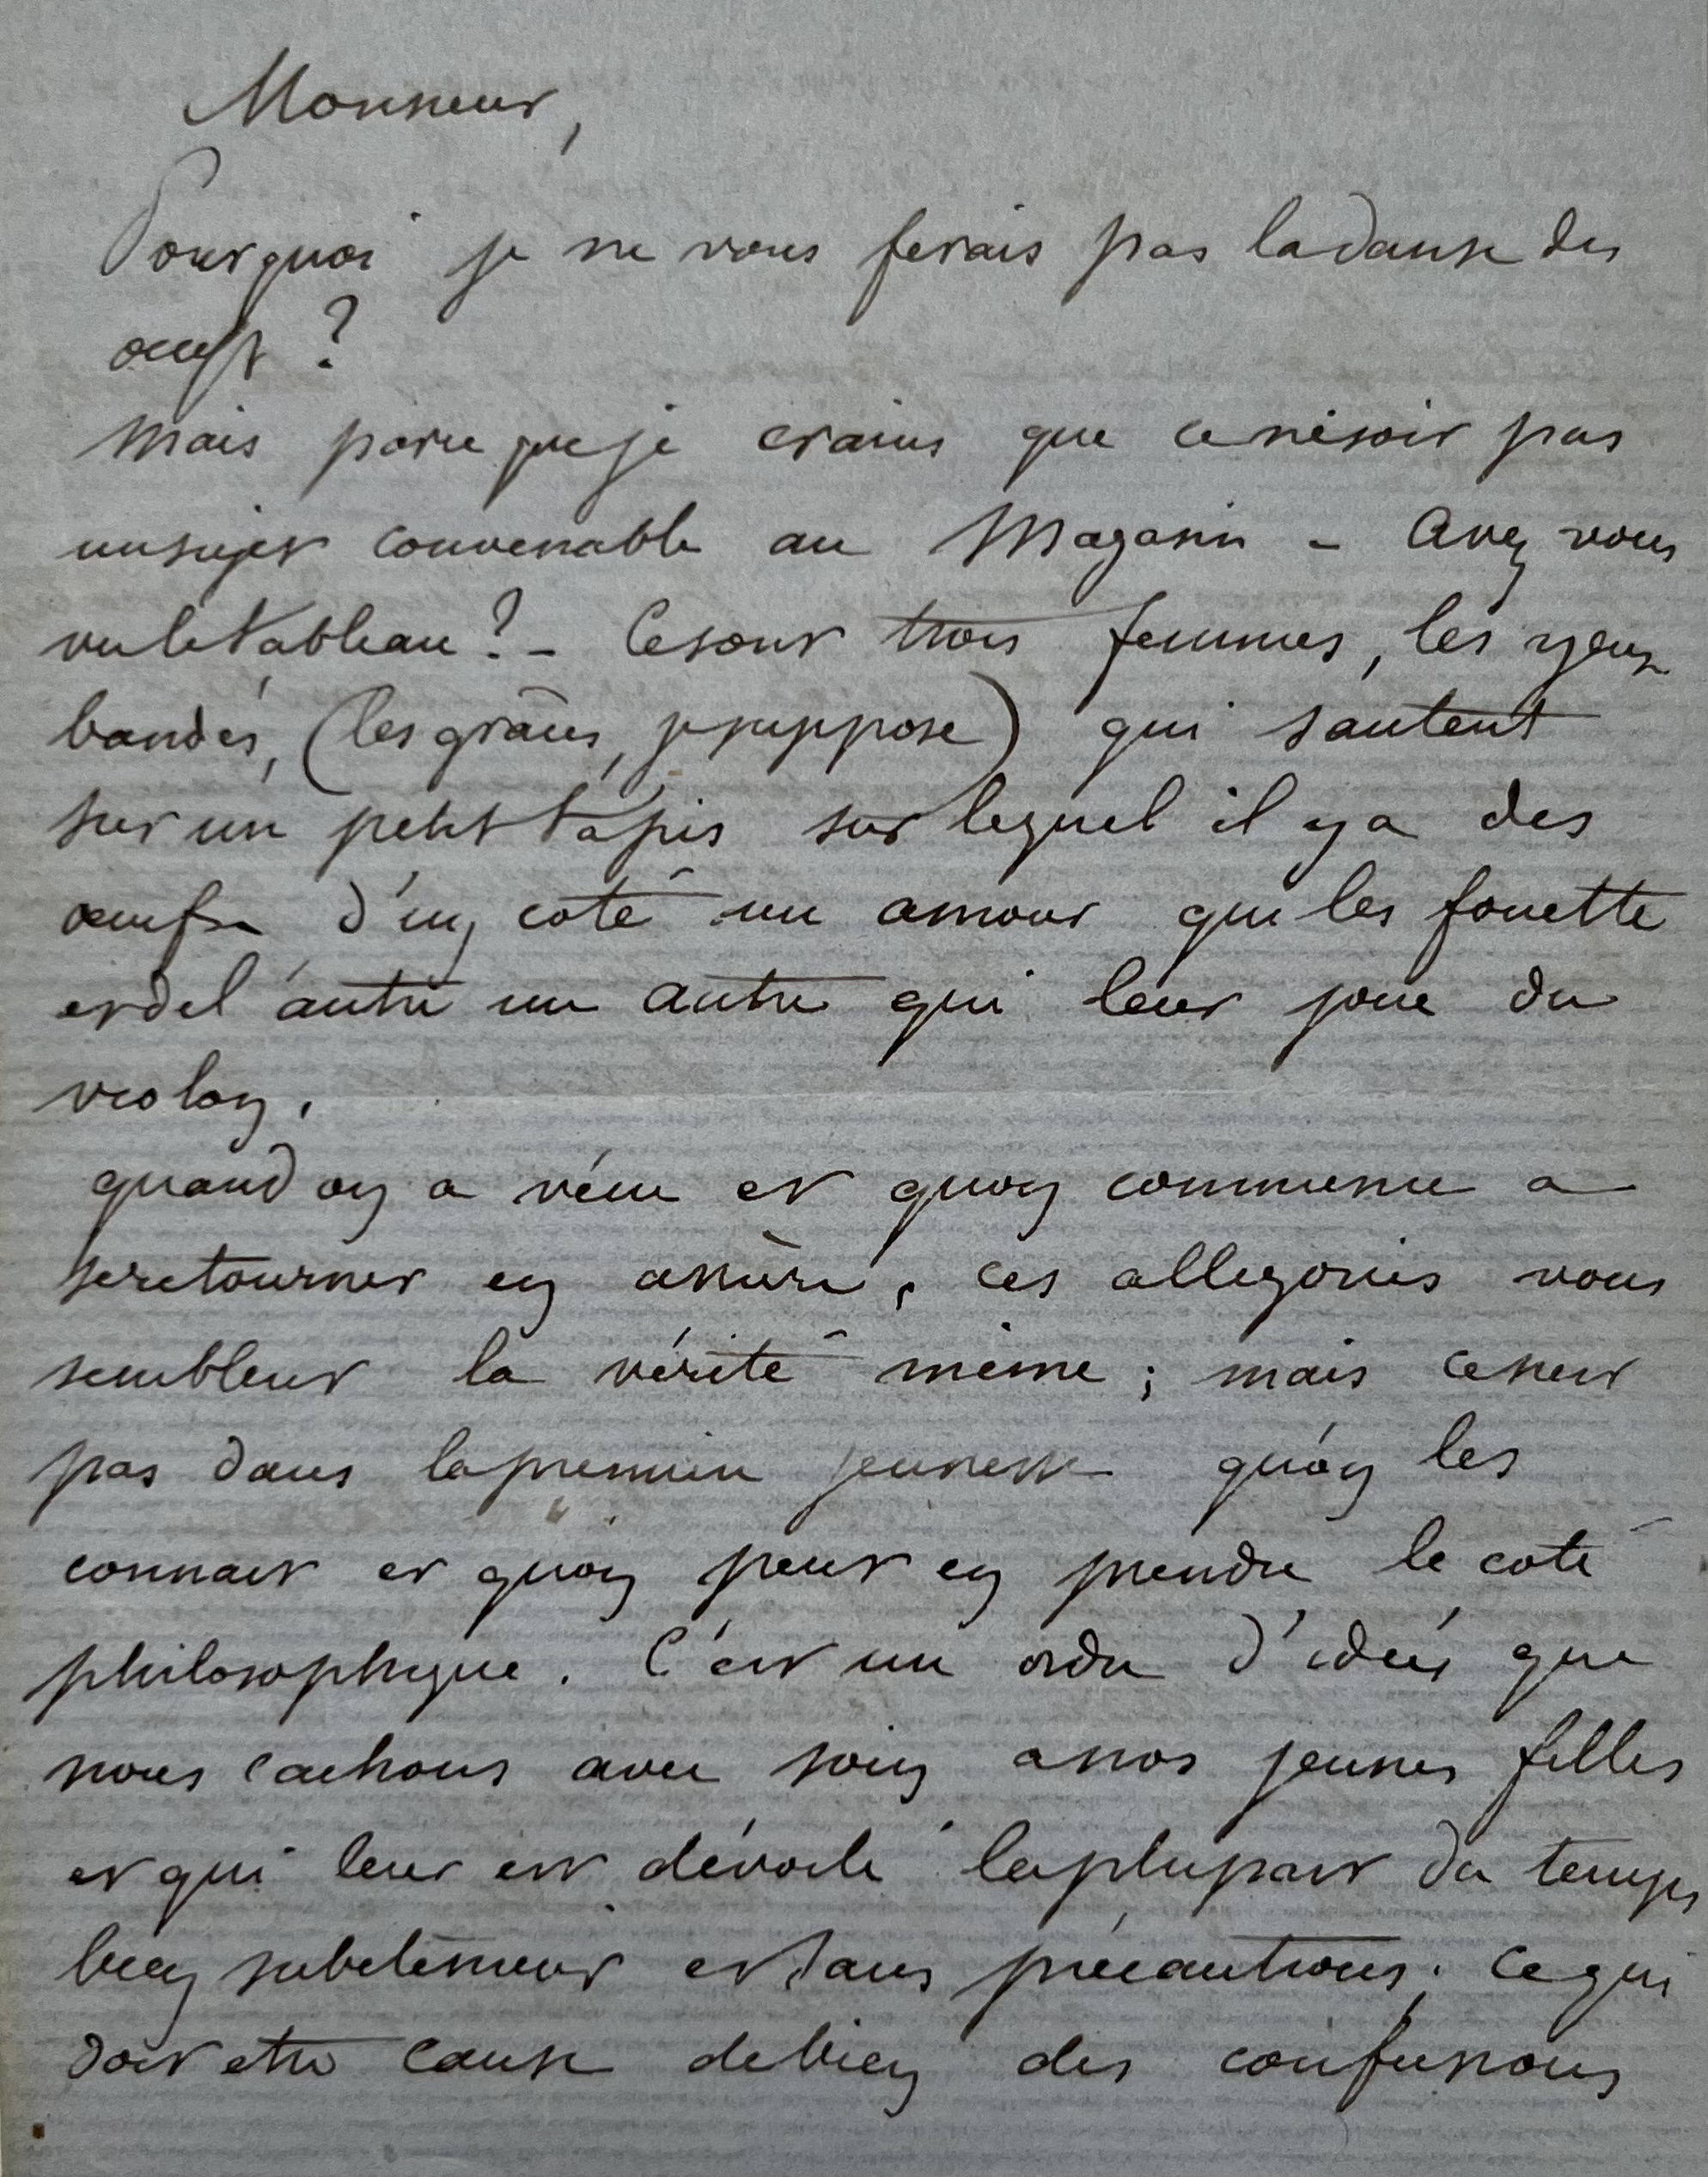 Monsieur,
Pourquoi je ne vous ferais pas la danse des
œufs ?
Mais parceque je crains que ce ne soit pas
un sujet convenable au Magasin - Avez vous
vu le tableau ? - Ce sont trois femmes, les yeux
bandés, (les grâces, je suppose) qui sautent
sur un petit tapis sur lequel il y a des
œufs d'un coté un amour qui les fouette
et de l'autre un autre qui leur joue du
violon.
quand on a vécu et qu'on commence a
se retourner en arrière, ces allegories vous
semblent la vérité même ; mais ce n'est
pas dans la première jeunesse qu'on les
connait et qu'on peut en prendre le coté
philosophique. C'est un ordre d'idées que
nous cachons avec soin a nos jeunes filles
et qui leur est dévoilé la plupart du temps
bien subitement et sans précautions ; ce qui
doit etre cause de bien des confusions